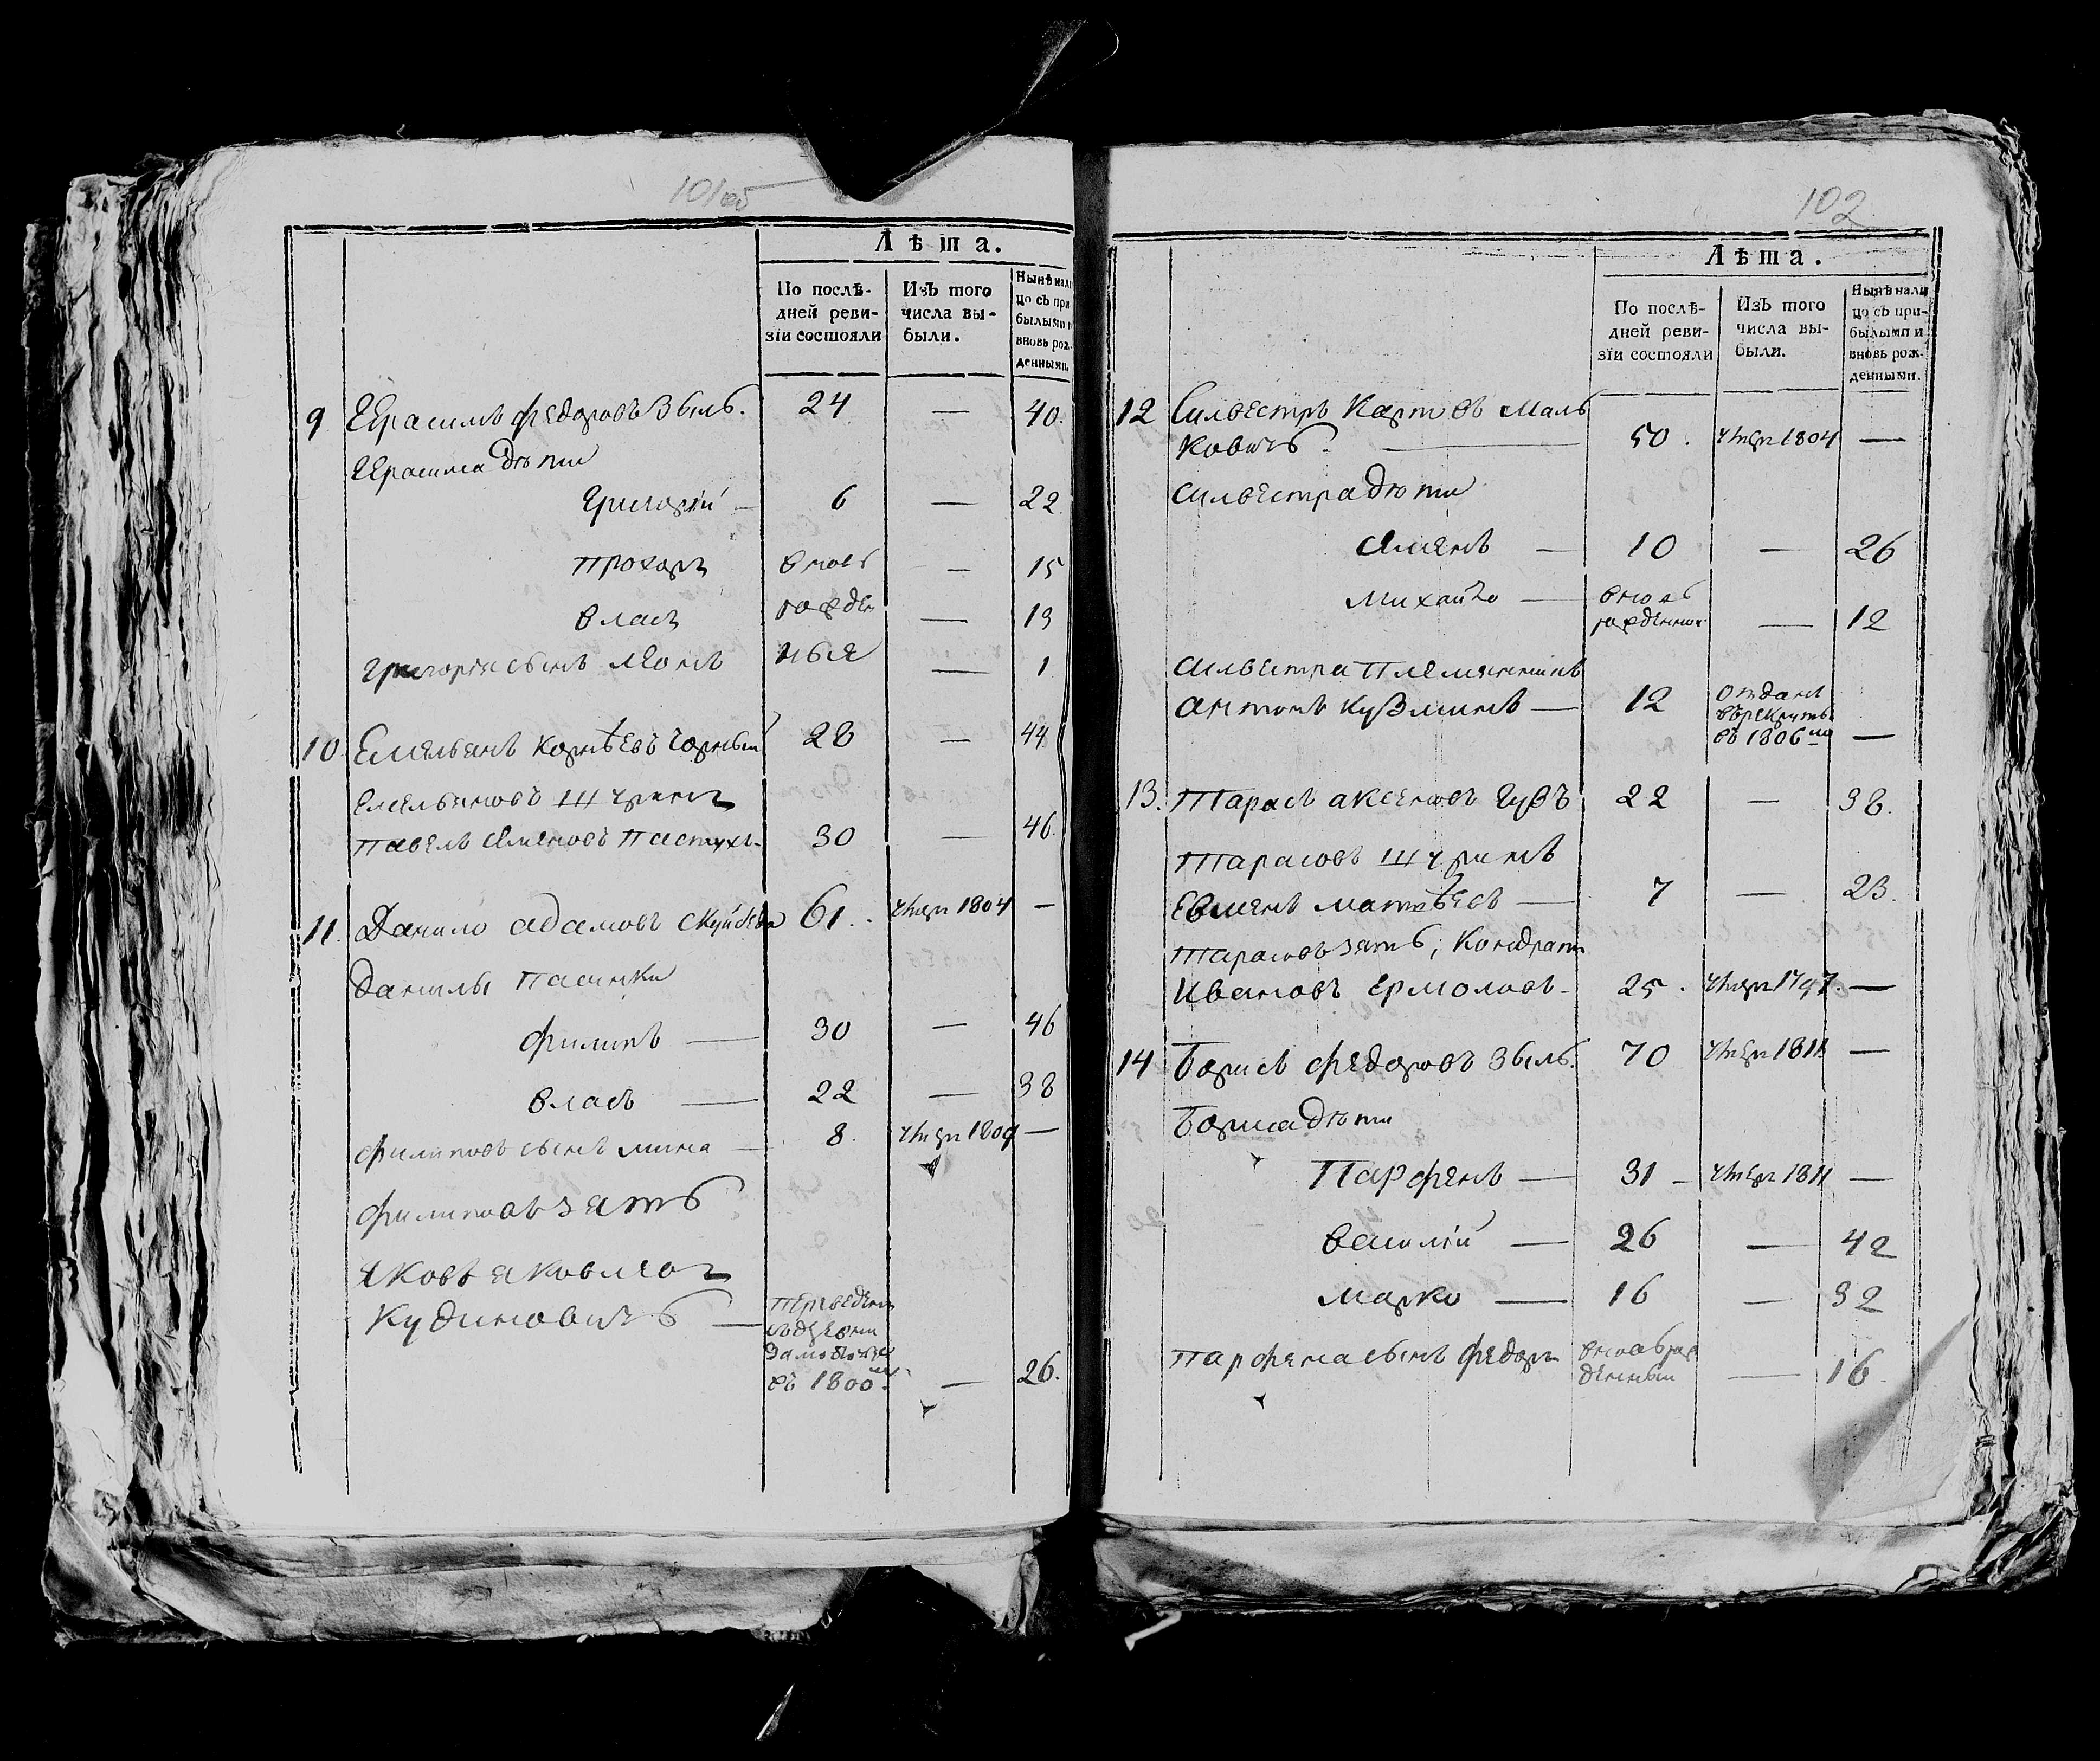 101об
Лѣта.
По послѣ-
дней реви-
зіи состояли
Изъ того
числа вы-
были.
Нынѣ нали
цо съ при
былыми и
вновь рож-
денными.
9 Герасимъ Федоровъ Збиль. 24 — 40.
Герасима дѣти
Григорій — 6 — 22.
Прохоръ вновь — 15
Власъ рожде — 13
Григорія сынъ Леонъ ныя — 1
10. Емельянъ Корнѣевъ Чорный 28 — 44
Емельяновъ шуринъ
Павелъ Семеновъ Пастухъ. 30 — 46.
11. Данило Адамовъ 61. умеръ 1804 —
Данилы пасынки
Филипъ — 30 — 46
Власъ — 22 — 38
Филиповъ сынъ Мина — 8. умеръ 1809 —
Филиповъ зять
Яковъ Яковлевъ
Кудиновичъ — переведенъ
въ 1800м. — 26.
102
Лѣта.
По послѣ-
дней реви-
зіи состояли
Изъ того
числа вы-
были.
Нынѣ нали
цо съ при-
былыми и
вновь рож-
денными.
12 Сильвестръ Карповъ Маль
ковичъ. — 50. умеръ 1804 —
Сильвестра дѣти
Семенъ — 10 — 26
Михайло — вновь
рожденный — 12
Сильвестра племянникъ
Антонъ Кузминъ — 12 отданъ
въ рекруты
въ 1806м —
13. Тарасъ Аксеновъ Гузъ 22 — 38.
Тарасовъ шуринъ
Евменъ Матвѣевъ — 7 — 23.
Тарасовъ зять, Кондратъ
Ивановъ Ермоловъ — 25. умеръ 1797. —
14 Борисъ Федоровъ Збиль. 70 умеръ 1811 —
Бориса дѣти
Парфенъ — 31 — умеръ 1811 —
Василій — 26 — 42
Марко — 16 — 32
Парфена сынъ Федоръ вновь рож
денный — 16.